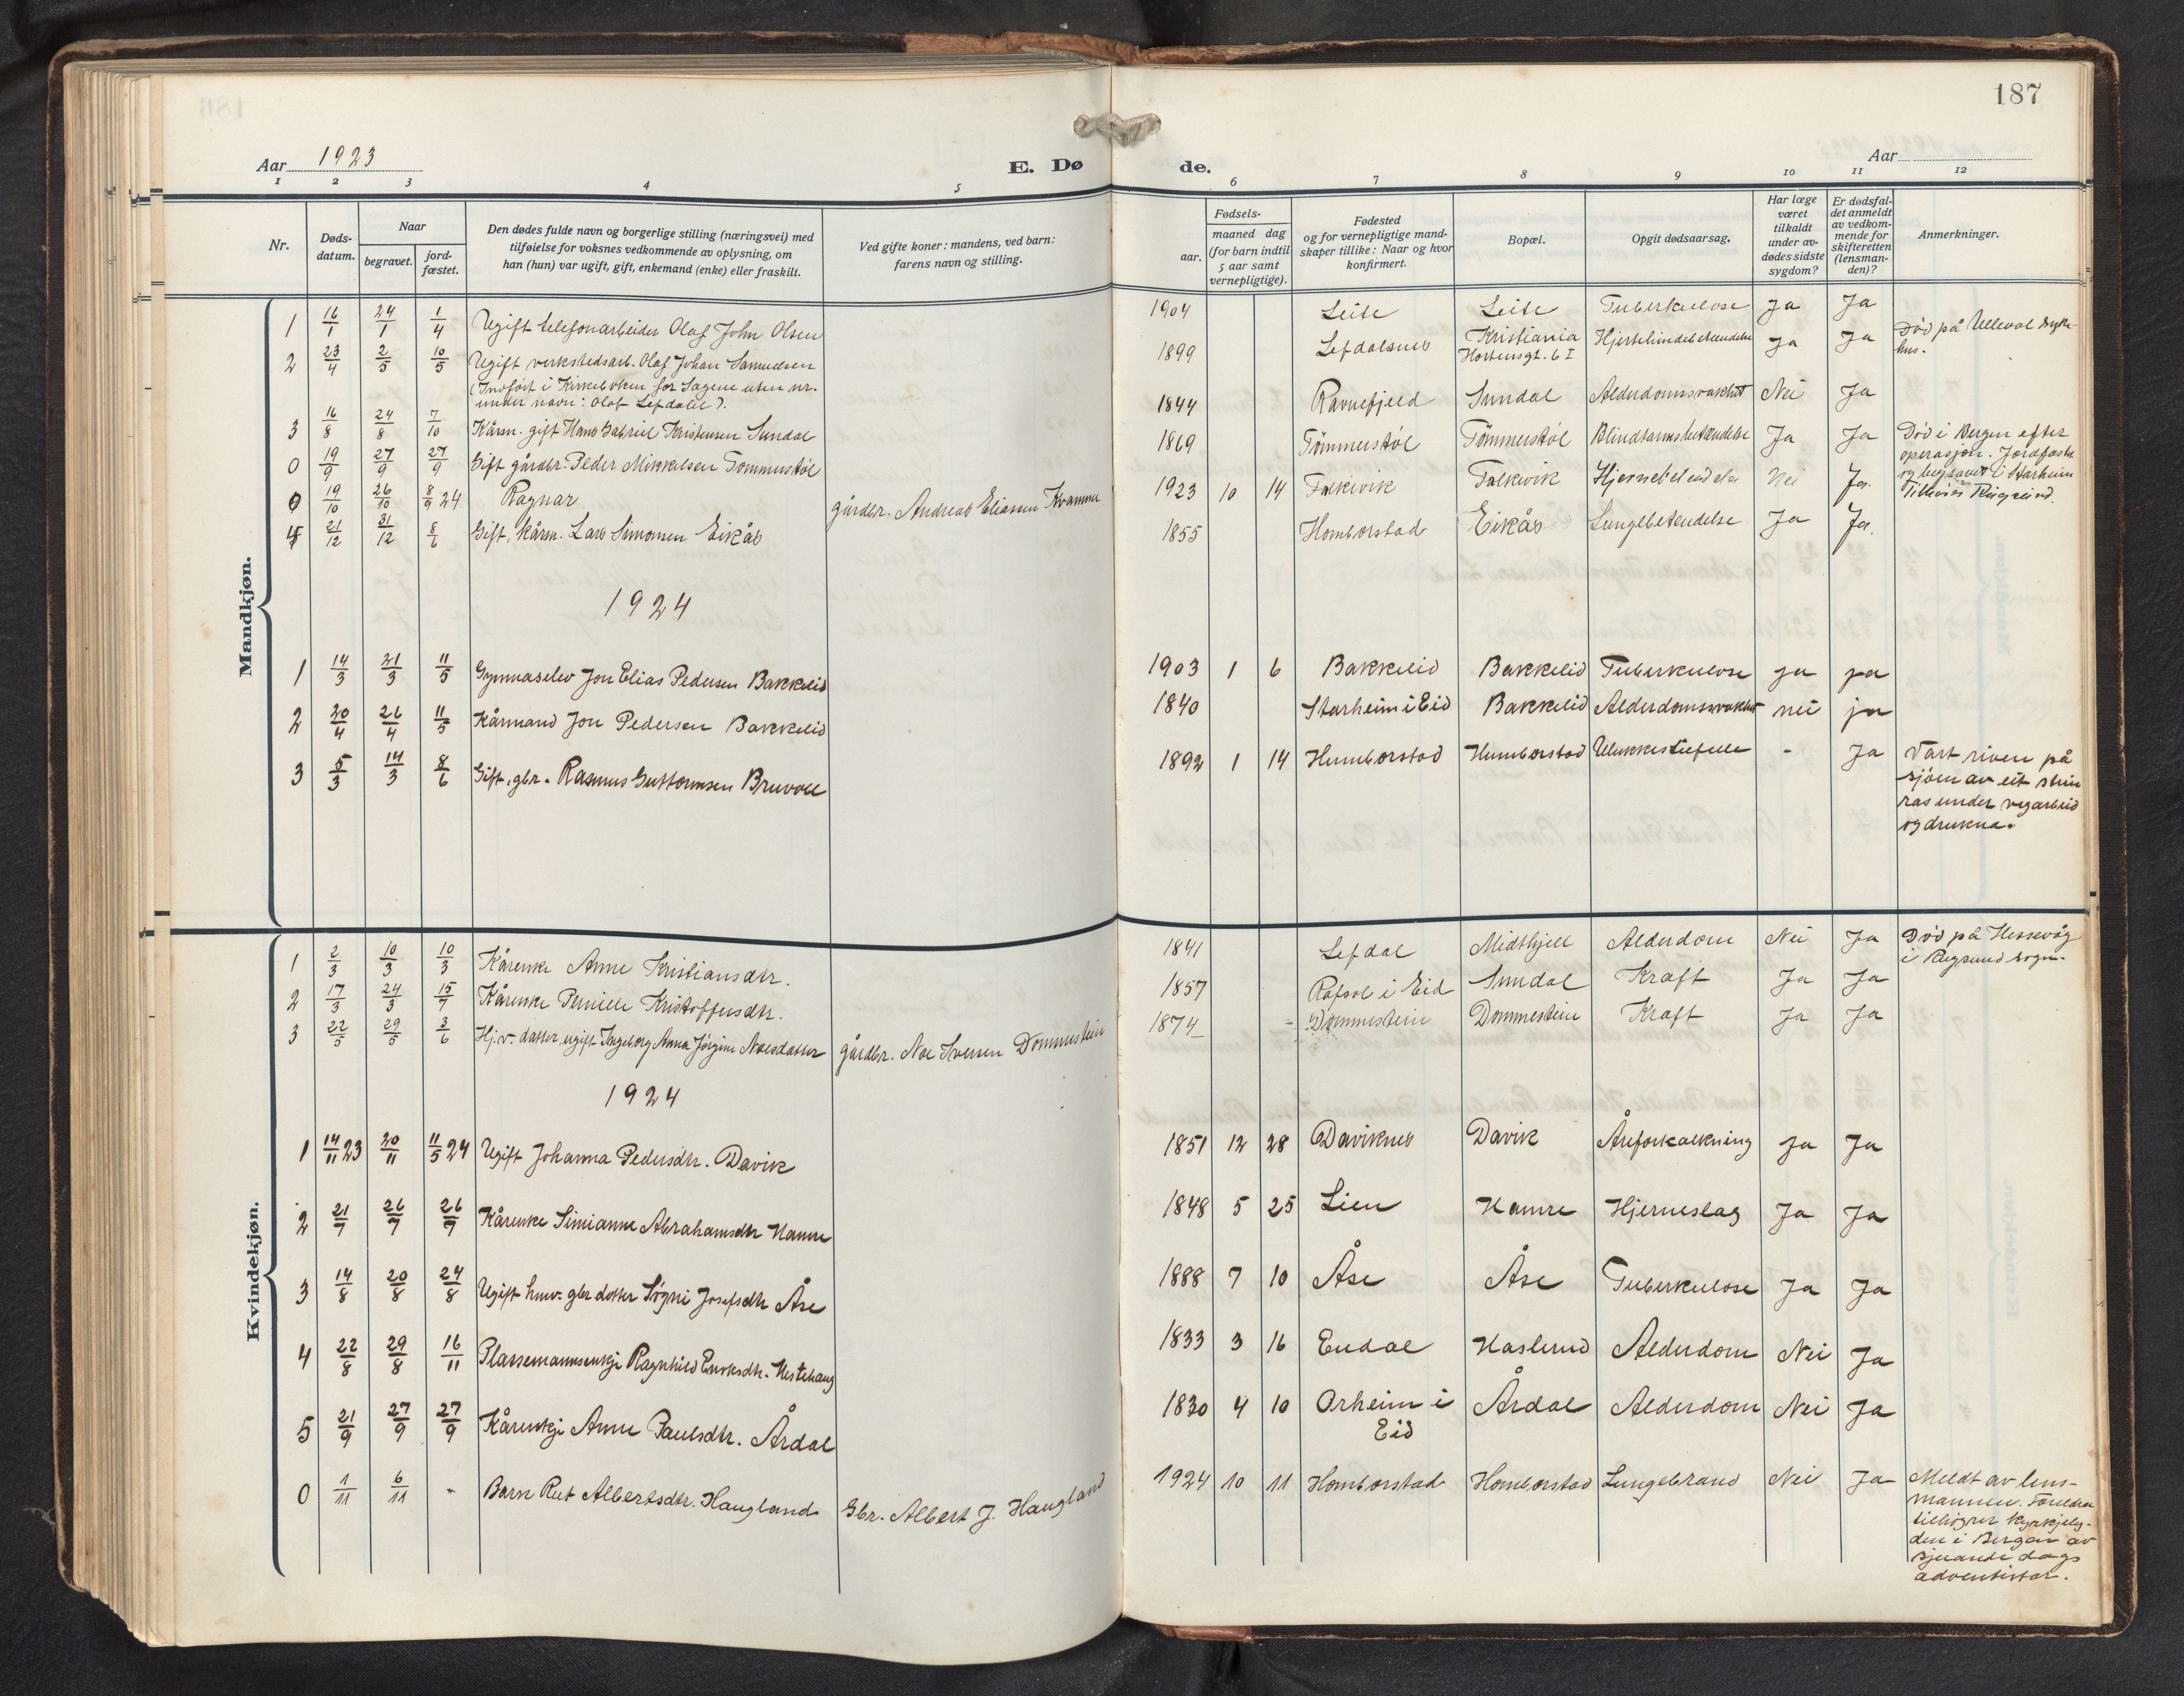 187
Aar 1923
E. Dø
de.
Aar
1 2 3 4 5 6 7 8 9 10 11 12
Nr.
Døds-
datum.
Naar
begravet.
jord-
fæstet.
Den dødes fulde navn og borgerlige stilling (næringsvei) med
tilføielse for voksnes vedkommende av oplysning, om
han (hun) var ugift, gift, enkemand (enke) eller fraskilt.
Ved gifte koner: mandens, ved barn:
farens navn og stilling.
Fødsels-
aar.
maaned dag
(for barn indtil
5 aar samt
vernepligtige).
Fødested
og for vernepligtige mand-
skaper tillike: Naar og hvor
konfirmert.
Bopæl.
Opgit dødsaarsag.
Har læge
været
tilkaldt
under av-
dødes sidste
sygdom?
Er dødsfal-
det anmeldt
av vedkom-
mende for
skifteretten
(lensman-
den)?
Anmerkninger.
Mandkjøn.
1 16/1 24/1 1/4 Ugift telefonarbeider Olaf John Olsen 1904 Leite Leite Tuberkulose Ja Ja
2 23/4 2/5 10/5 Ugift verkstedsarb. Olaf Johan Samuelsen 1899 Lefdalsnes Kristiania Hjertehindebetændelse Ja Ja Død på Ulleval syke-
hus.
(Indført i Kirkeboken for Sagene uten nr.
under navn: Olaf Lefdalil).
3 16/8 24/8 7/10 Kårm. gift Hans Gabriel Kristensen Sundal 1844 Ravnefjeld Sundal Alderdomssvakhet Nei Ja
0 19/9 27/9 27/9 Gift gårdbr. Peder Mikkelsen Tommerstøl 1869 Tømmerstøl Tømmerstøl Blindtarmsbetændelse Ja Ja Død i Bergen efter
operasjon. Jordfæstet
og begravet i Starheim
0 19/10 26/10 8/9 24 Ragnar gårdbr. Andreas Eliassen Kvamme 1923 10 14 Falkevik Falkevik Hjernebetendelse Nei Ja.
4 21/12 31/12 8/6 Gift, kårm. Lars Simonsen Eikås 1855 Homborstad Eikås Lungebetendelse Ja Ja.
1924
1 14/3 21/3 11/5 Gymnaselev Jon Elias Pedersen Bakkelid 1903 1 6 Bakkelid Bakkelid Tuberkulose ja ja
2 20/4 26/4 11/5 Kårmand Jon Pedersen Bakkelid 1840 Starheim i Eid Bakkelid Alderdomssvakhet nei ja
3 5/3 14/3 8/6 Gift, gbr. Rasmus Guttormsen Bruvoll 1892 1 14 Humborstad Humborstad Ulukkestilfelle - Ja Vart riven på
sjøen av eit stein
ras under vegarbeid
og drukna.
Kvindekjøn.
1 2/3 10/3 10/3 Kårenke Anne Kristiansdtr. 1841 Lefdal Midthjell Alderdom Nei Ja Død på Hessevåg
i Rugsund sogn.
2 17/3 24/3 15/7 Kårenke Pernille Kristoffersdtr. 1857 Rafsol i Eid Sundal Kraft Ja Ja
3 22/5 29/5 3/6 Hj.v. datter, ugift Ingeborg Anna Jørgine Noesdatter gårdbr. Noe Iversen Dommestein 1874 Dommestein Dommestein Kraft Ja Ja
1924
1 14/11 23 20/11 11/5 24 Ugift Johanna Pedersdtr. Davik 1851 12 28 Daviknes Davik Åreforkalkning Ja Ja
2 21/7 26/7 26/7 Kårenke Simianne Abrahamsdtr Hamre 1848 5 25 Lien Hamre Hjerneslag Ja Ja
3 14/8 20/8 24/8 Ugift husv. gbr dotter Søgni Josefsdtr Åse 1888 7 10 Åse Åse Tuberkulose Ja Ja
4 22/8 29/8 16/11 Plassemannsenkje Ragnhild Eiriksdtr. Hestehaug 1833 3 16 Endal Haslund Alderdom Nei Ja
5 21/9 27/9 27/9 Kårenkje Anne Paulsdtr. Årdal 1830 4 10 Orheim i
Eid Årdal Alderdom Nei Ja
0 1/11 6/11 - Barn Rut Albertsdtr. Haugland Gbr. Albert J. Haugland 1924 10 11 Homborstad Homborstad Lungebrand Nei Ja Meldt av lens-
mannen. Foreldra
tilhøyrer kyrkjely-
den i Bergen av
sjuande dags
adventistar.